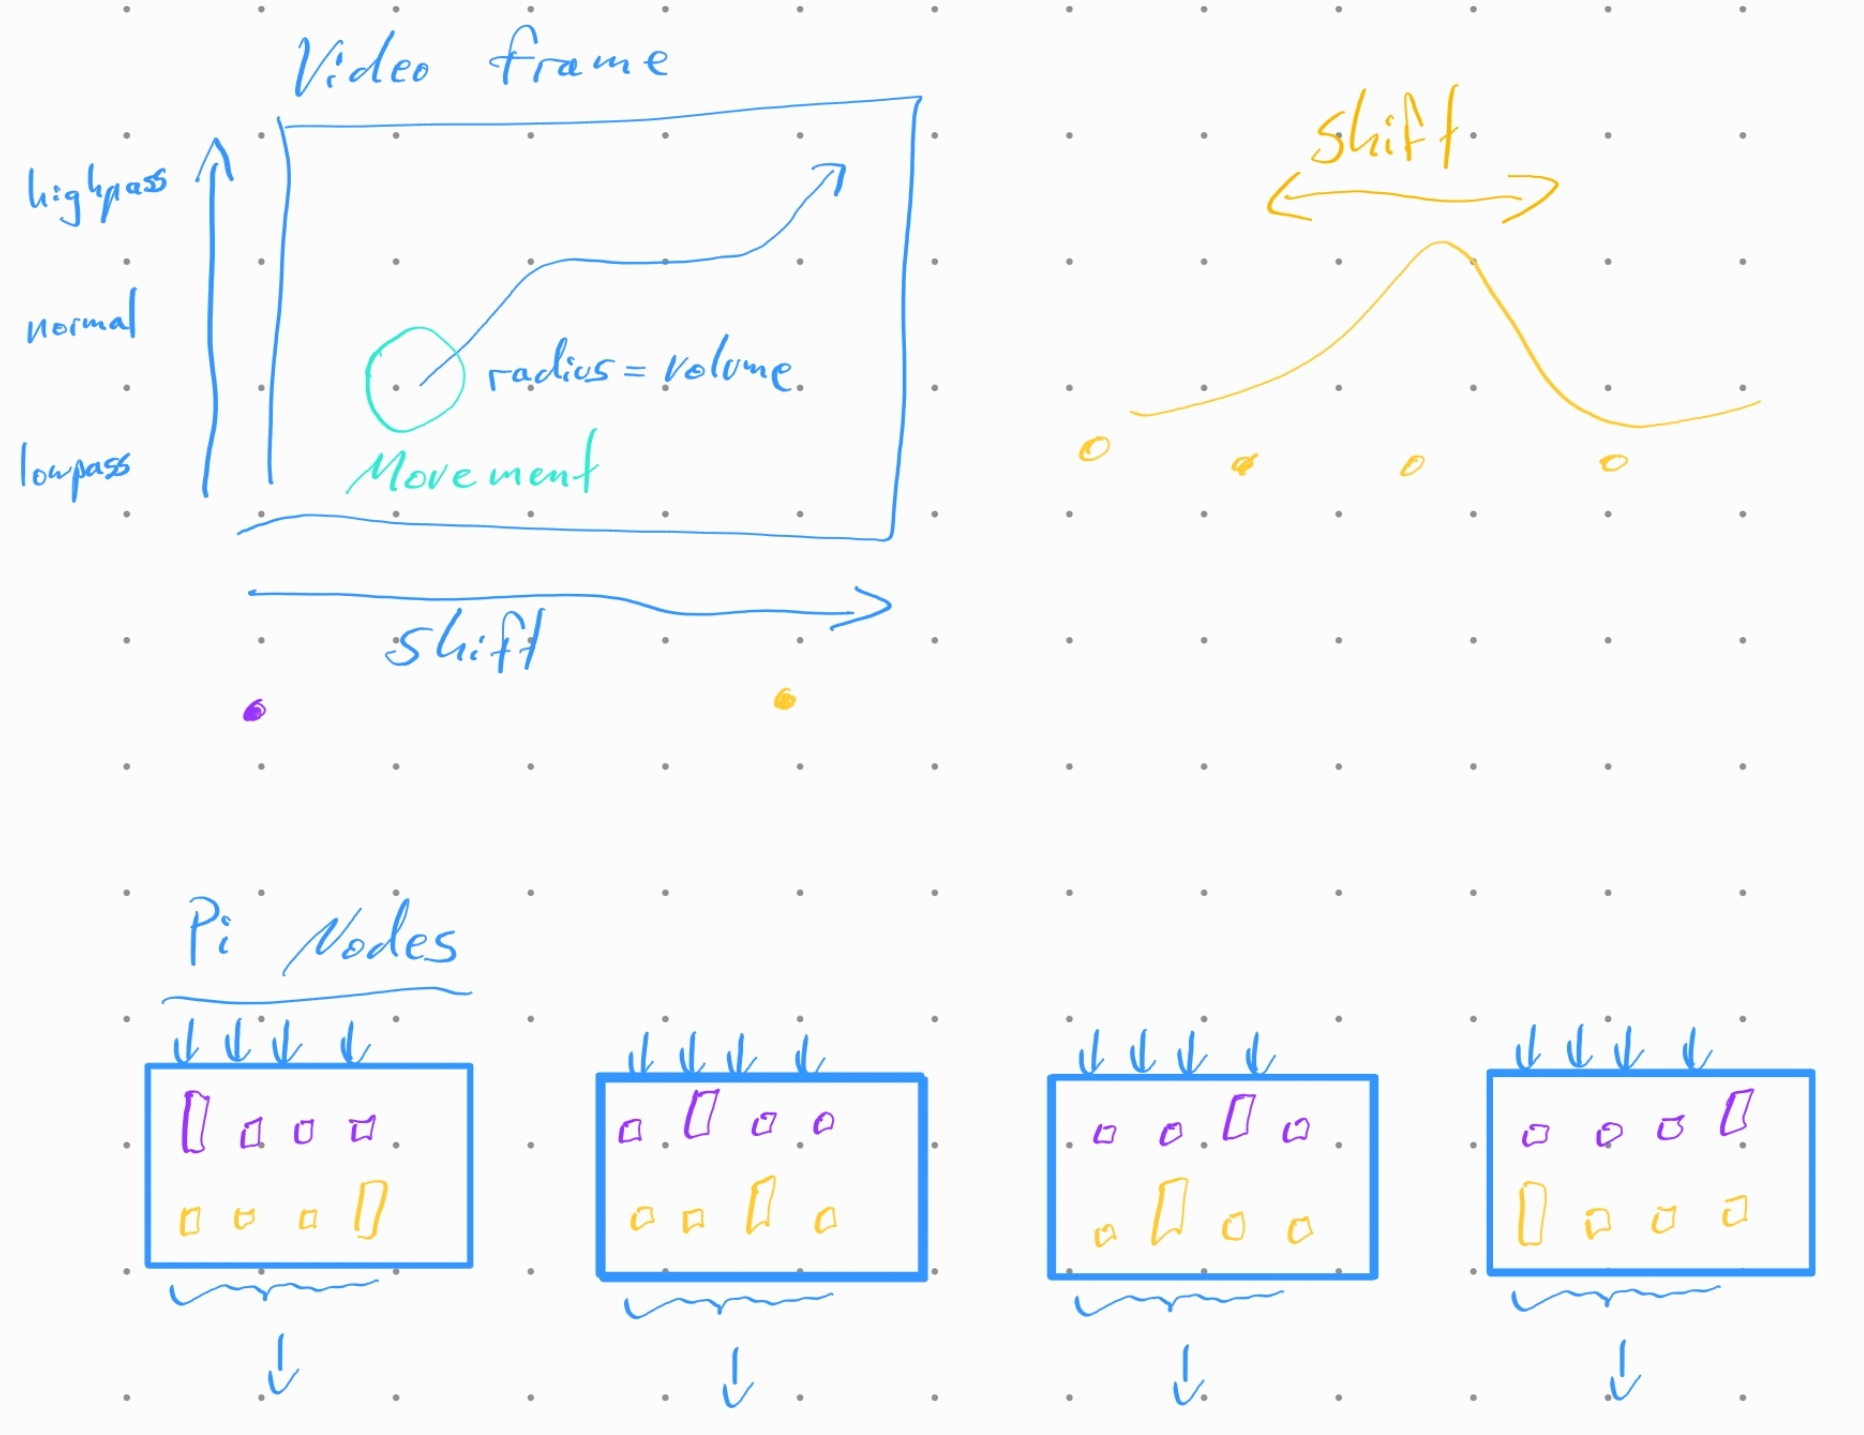 Video frame
highpass
normal
lowpass
radius = volume
Movement
shift
shift
Pi Nodes